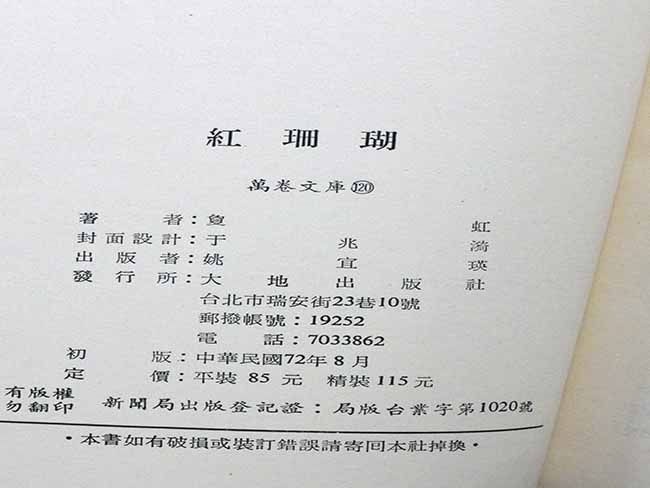 紅珊瑚
萬卷文庫⑫⓪
著者:敻虹
封面設計:于兆漪
出版者:姚宜瑛
發行所:大地出版社
台北市瑞安街23巷10號
郵撥帳號:19252
電話:7033862
初版:中華民國72年8月
定價:平裝85元 精裝115元
有版權
勿翻印
新聞局出版登記證:局版台業字第1020號
·本書如有破損或裝訂錯誤請寄回本社掉換·